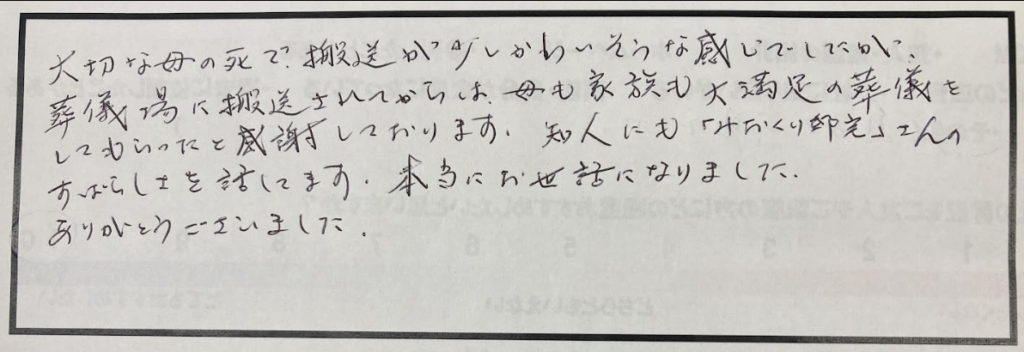 大切な母の死で搬送が少しかわいそうな感じでしたが、
葬儀場に搬送されてからは、母も家族も大満足の葬儀を
してもらったと感謝しております。知人にも「」さんの
すばらしさを話してます。本当にお世話になりました。
ありがとうございました。